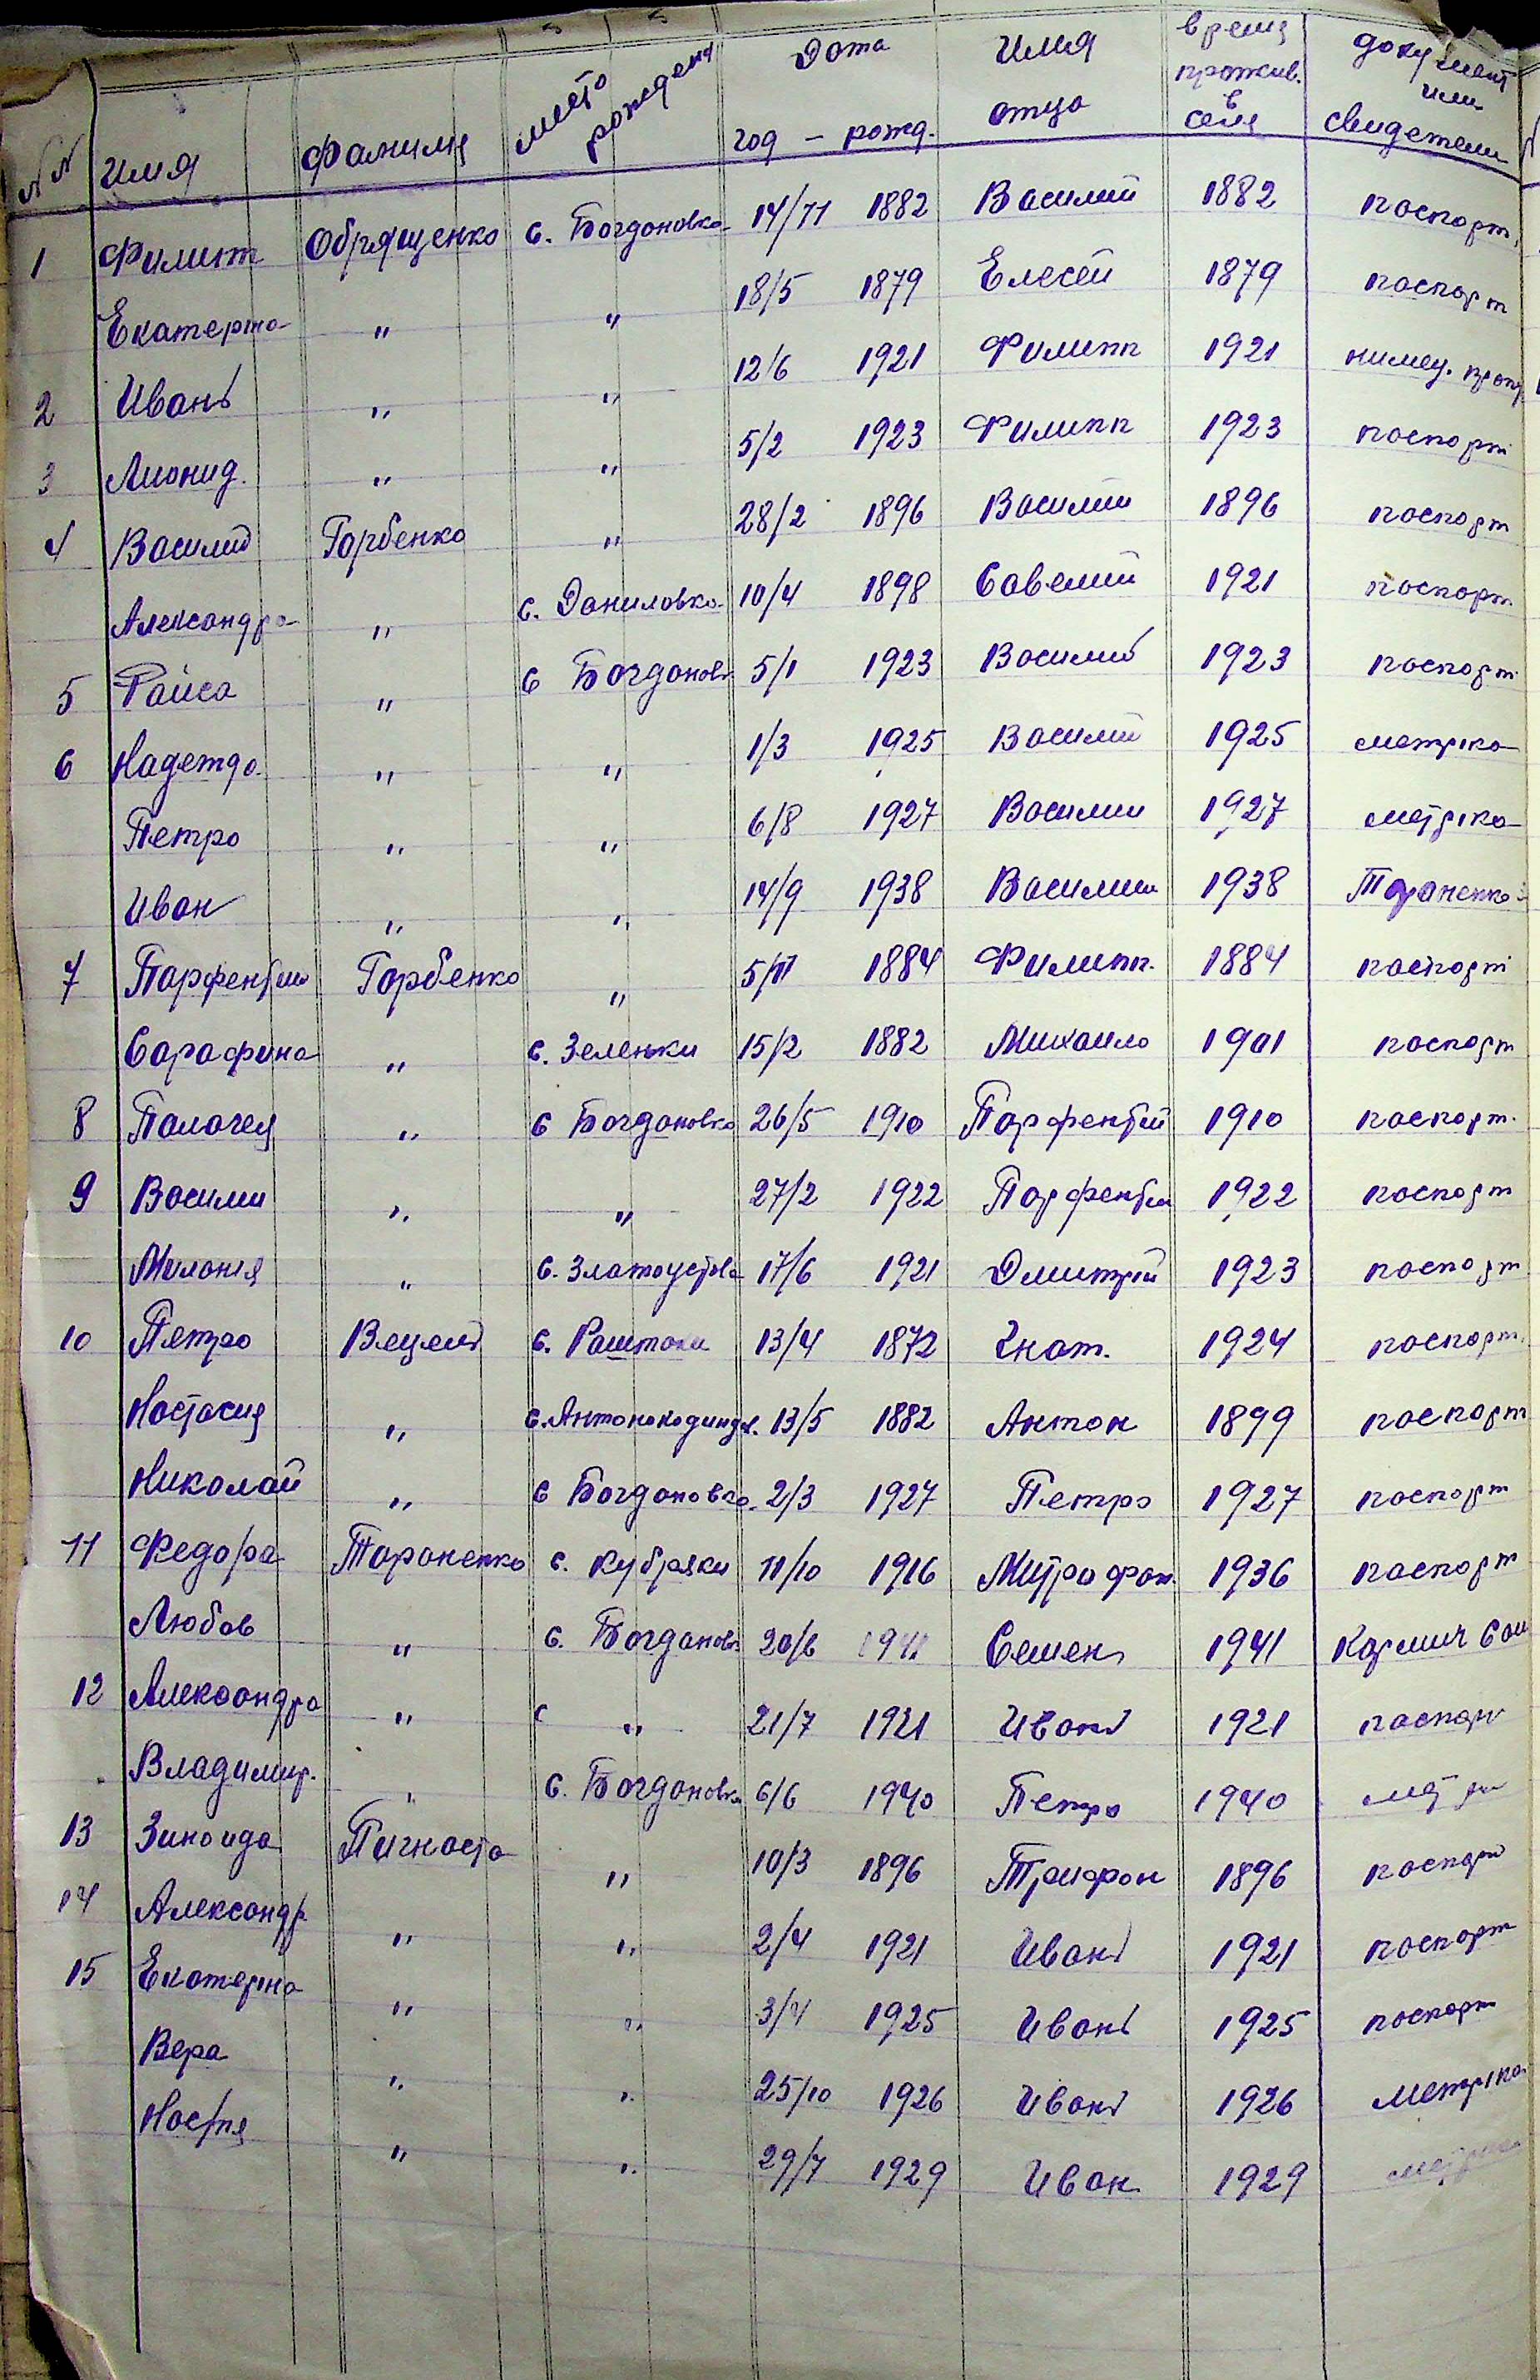 NN имя фамилия место рождения Дата год - рожд. имя отца время прожив. в селе документ или свидетели
1 Филипп Обрященко с. Богдановка 14/11 1882 Василий 1882 паспорт
Екатерина " " 18/5 1879 Елесей 1879 паспорт
2 Иван " " 12/6 1921 Филипп 1921 нимец.
3 Лионид. " " 5/2 1923 Филипп 1923 паспорт
4 Василий Горбенко " 28/2 1896 Василий 1896 паспорт
Александра " с. Даниловка 10/4 1898 Савелий 1921 паспорт
5 Раиса " с Богдановк. 5/1 1923 Василий 1923 паспорт
6 Надежда " " 1/3 1925 Василий 1925 метрика
Петро " " 6/8 1927 Василий 1927 метрика
Иван " " 14/9 1938 Василий 1938 Тараненко
7 Парфентий Горбенко " 5/11 1884 Филипп. 1884 паспорт
Сарафина " с. Зеленки 15/2 1882 Михайло 1901 паспорт
8 Палагея " с Богдановка 26/5 1910 Парфентий 1910 паспорт.
9 Васили " " 27/2 1922 Парфентий 1922 паспорт
Милания " с. Златоустова 17/6 1921 Дмитрий 1923 паспорт
10 Петро с. Раштаки 13/4 1872 Гнат. 1924 паспорт
Настасия " с. Антонокодинц. 13/5 1882 Антон 1899 паспорт
Николай " с Богдановка 2/3 1927 Петро 1927 паспорт
11 Федора Тараненко с. Кубряки 11/10 1916 Митрофан 1936 паспорт
Любов " с. Богдановк. 20/6 1941 Семен 1941
12 Александра " с " 21/7 1921 Иван 1921 паспорт
Владимир. " с. Богдановка 6/6 1940 Петро 1940
13 Зиноида Пигнаста " 10/3 1896 Трифон 1896 паспорт
14 Александр. " " 2/4 1921 Иван 1921 паспорт
15 Екатерина " " 3/4 1925 Иван 1925 паспорт
Вера " " 25/10 1926 Иван 1926 метрика
Настя " " 29/7 1929 Иван 1929 метрика